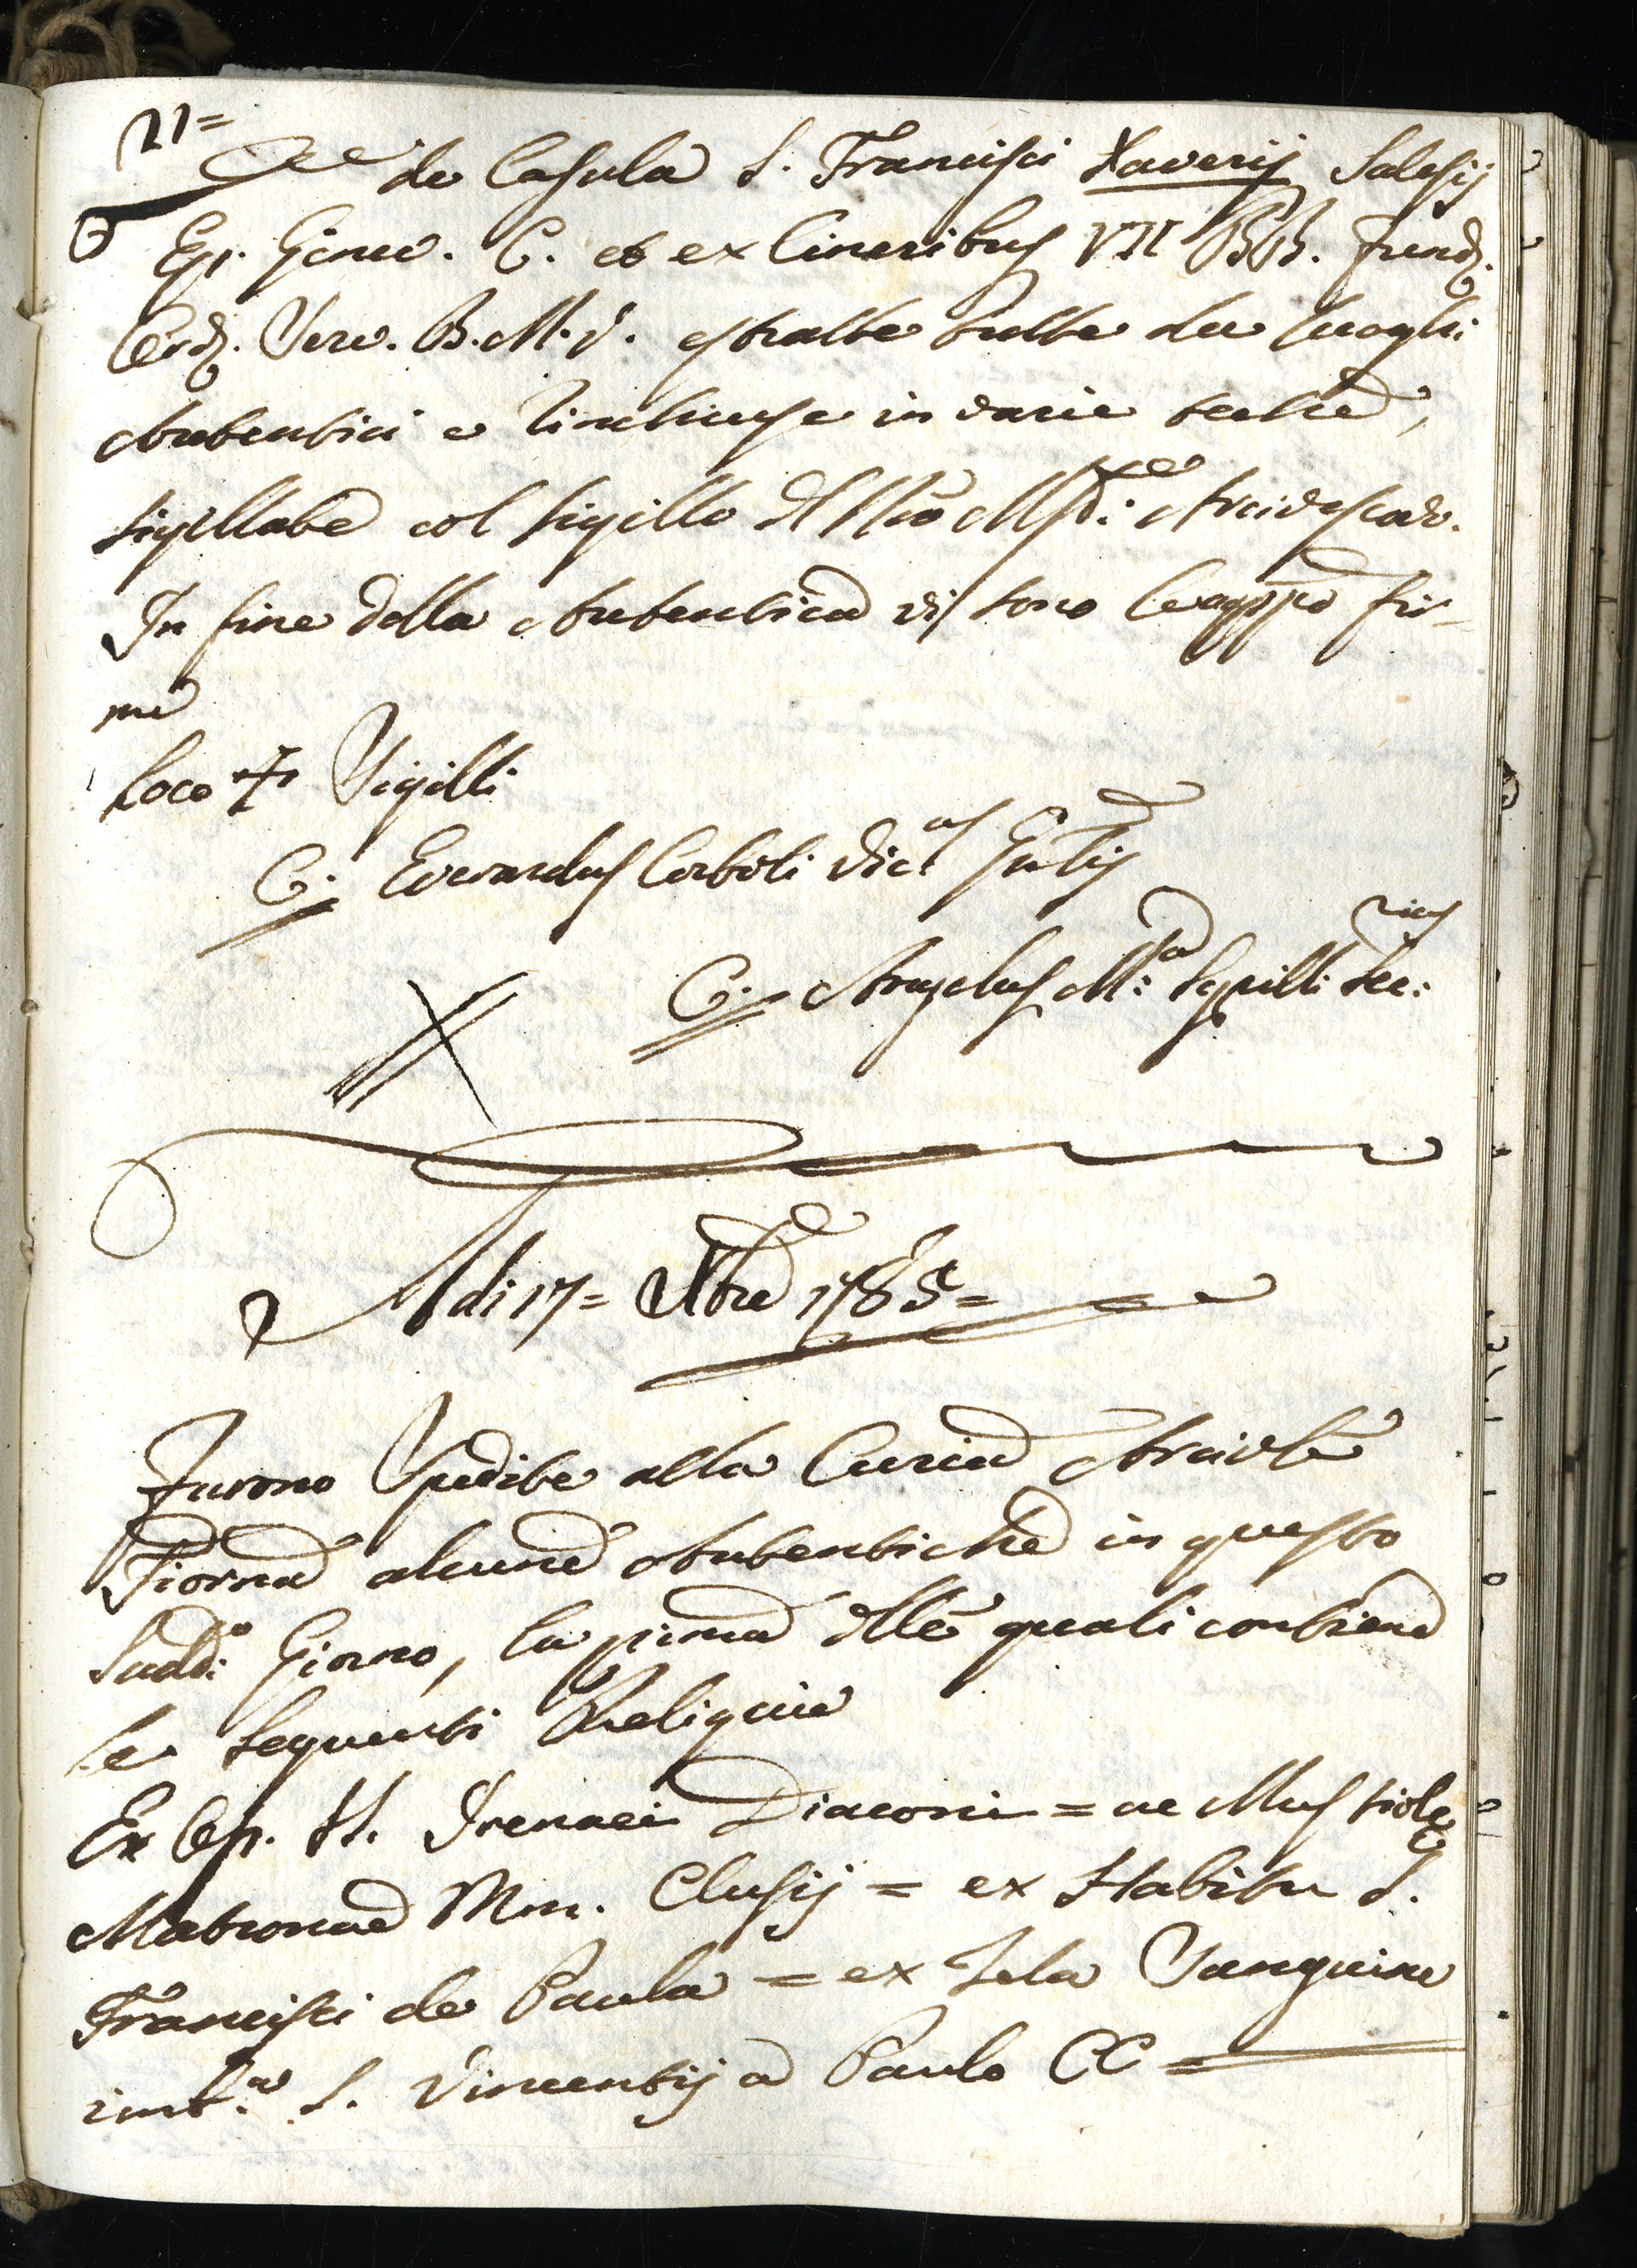 21=
de Casula S. Francisci Xaverij Salesij
Ep. Genev. C. et ex Cineribus VII BB. Fund.
Ord. Serv. B.M.V. estratte tutte da luoghi
Autentici e rinchiuse in varie teche,
sigillate col sigillo di Mr̃o Arcivescovo.
In fine della Autentica vi sono le appĩe fir-
me
Loco + Sigilli
C. Eduardus Corboli Vic.us Gñlis
C. Angelus M.a Squilli Sec.rius
Adi 17= Xbre 1785=
Furono Spedite alla Curia Arcivle
Fiorna alcune Autentiche in questo
Sudd.o Giorno, la prima dlle quali contiene
le seguenti Reliquie
Ex Oss. SS. Irenaei Diaconi = ac Mustiolę
Matronae Mm. Clusij = ex Habitu S.
Francisci de Paula = ex Tela Sanguine
intã S. Vincentij a Paulo CC =